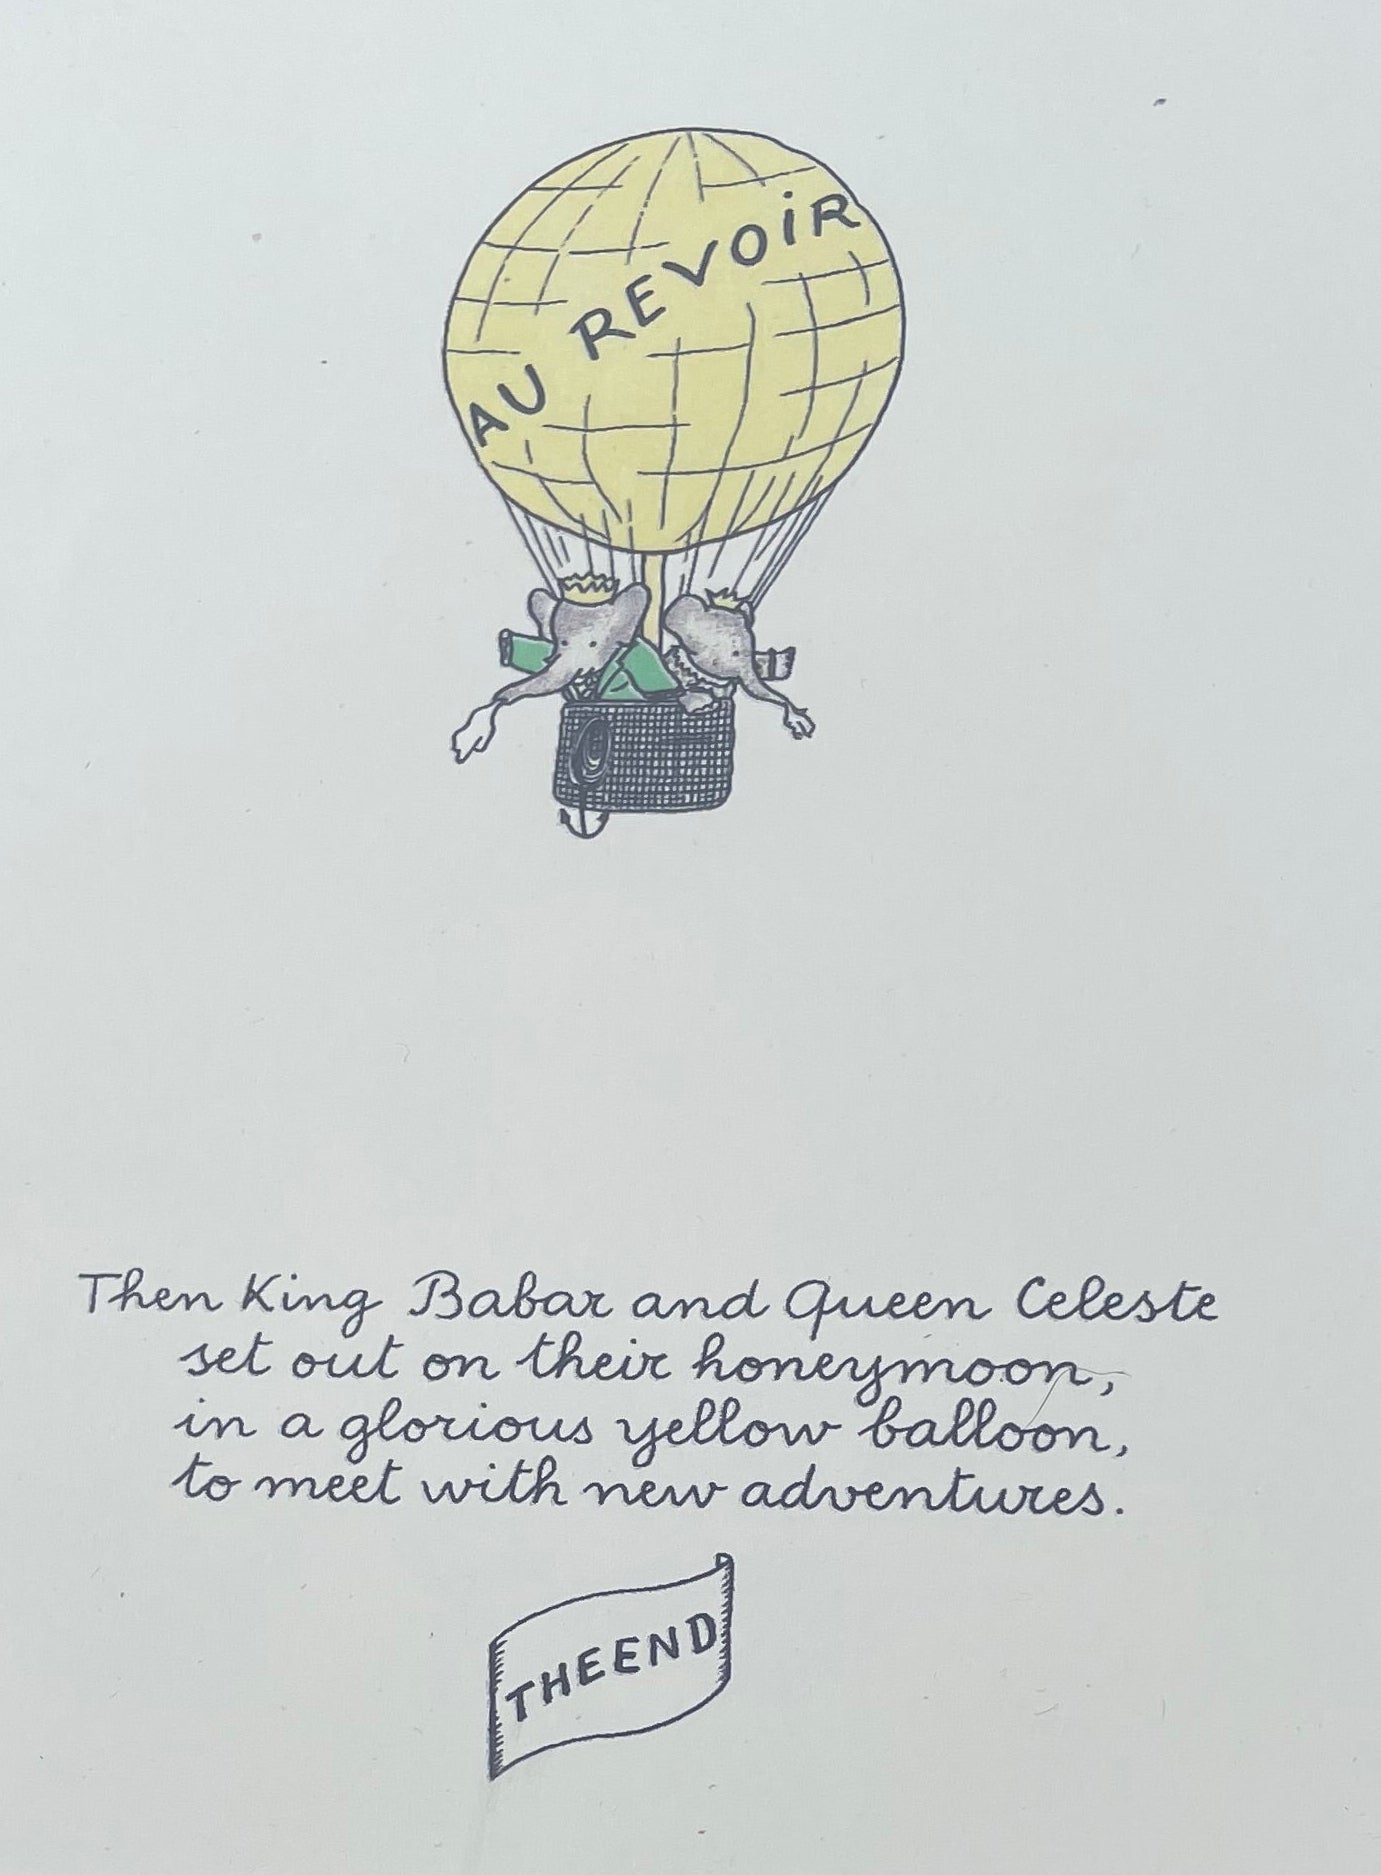 AU REVOiR
Then King Babar and Queen Celeste
set out on their honeymoon,
in a glorious yellow balloon,
to meet with new adventures.
THE END